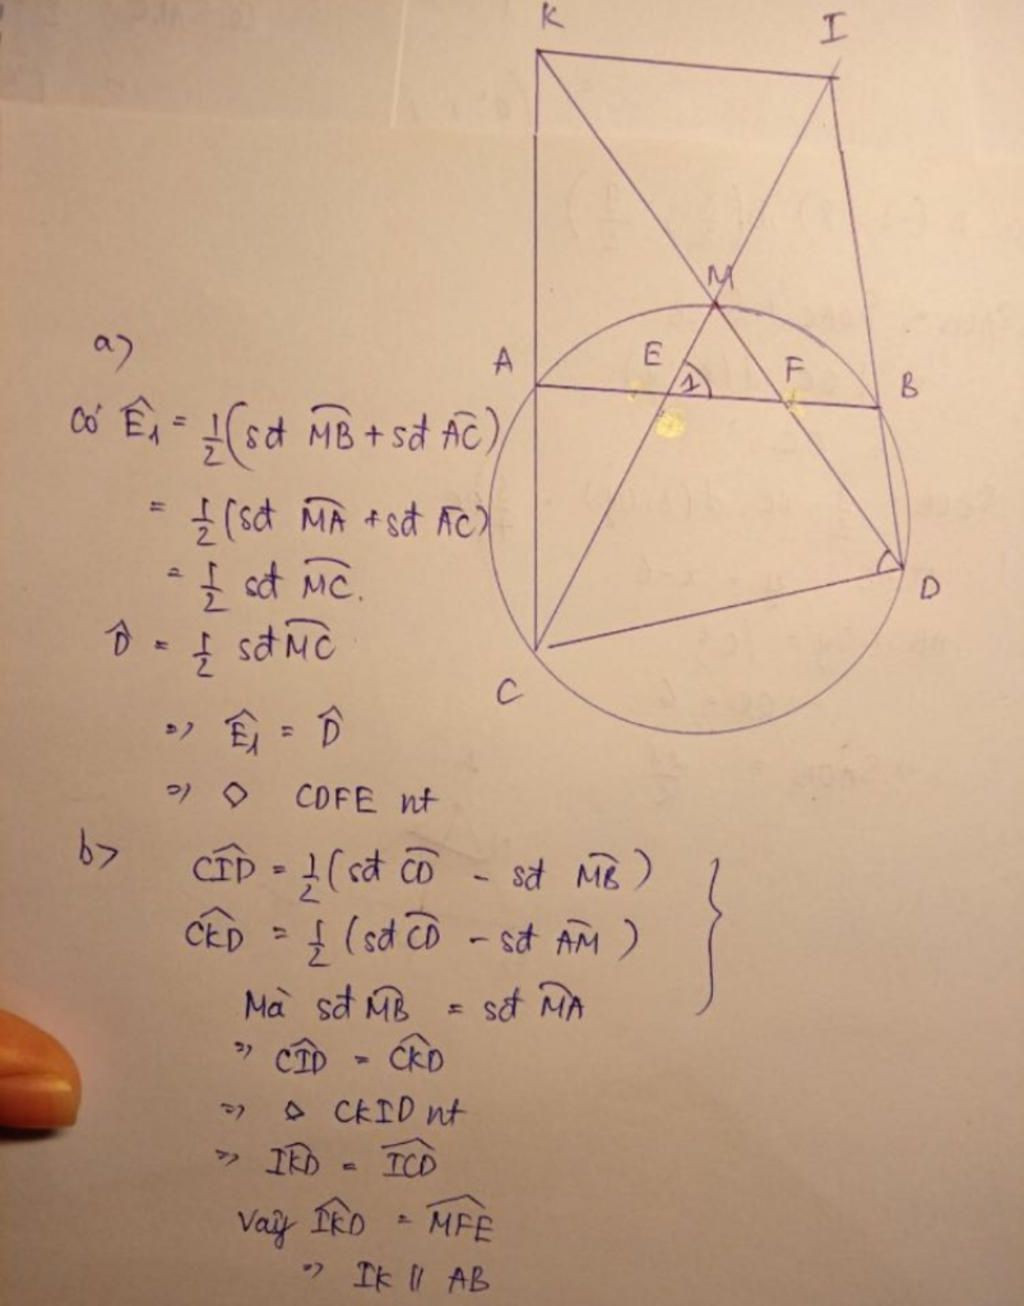 K
I
M
A
E
1
F
B
D
C
a)
Có Ê₁ = 1/2 (sđ M͡B + sđ A͡C)
= 1/2 (sđ M͡A + sđ A͡C)
= 1/2 sđ M͡C.
D̂ = 1/2 sđ M͡C
=> Ê₁ = D̂
=> ◇ CDFE nt
b>
CÎD = 1/2 (sđ C͡D - sđ M͡B)
CK̂D = 1/2 (sđ C͡D - sđ A͡M)
Mà sđ M͡B = sđ M͡A
=> CÎD = CK̂D
=> ◇ CKID nt
=> IK̂D = IĈD
Vậy IK̂D = MF̂E
=> IK // AB